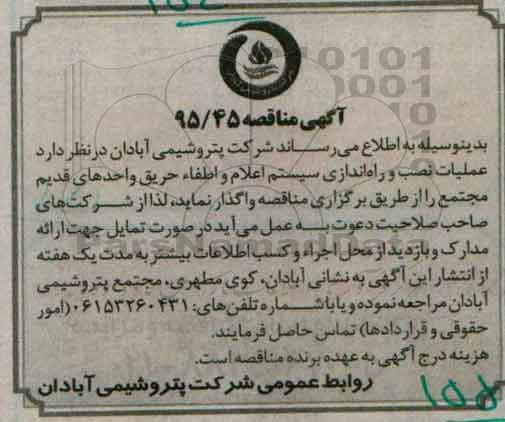 آگهی مناقصه ۹۵/۴۵
بدینوسیله به اطلاع می‌رساند شرکت پتروشیمی آبادان در نظر دارد
عملیات نصب و راه‌اندازی سیستم اعلام و اطفاء حریق واحدهای قدیم
مجتمع را از طریق برگزاری مناقصه واگذار نماید، لذا از شرکت‌های
صاحب صلاحیت دعوت به عمل می‌آید در صورت تمایل جهت ارائه
مدارک و بازدید از محل اجراء و کسب اطلاعات بیشتر به مدت یک هفته
از انتشار این آگهی به نشانی آبادان، کوی مطهری، مجتمع پتروشیمی
آبادان مراجعه نموده و یا با شماره تلفن‌های: ۰۶۱۵۳۲۶۰۴۳۱ (امور
حقوقی و قراردادها) تماس حاصل فرمایند.
هزینه درج آگهی به عهده برنده مناقصه است.
روابط عمومی شرکت پتروشیمی آبادان
ParsNamadData